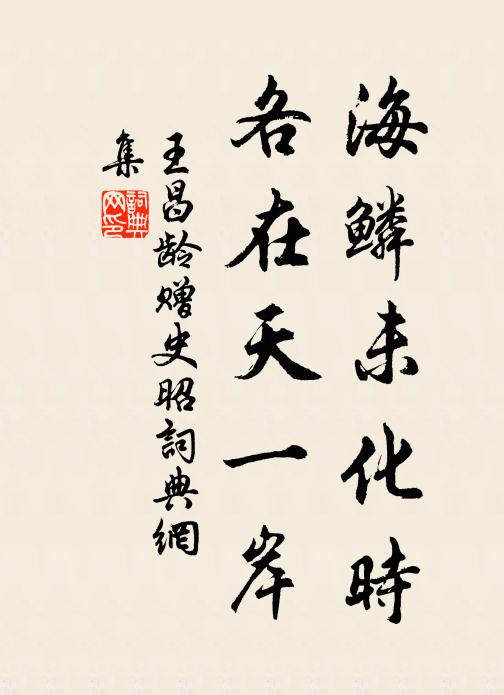 海鳞未化時
各在天一岸
王昌龄赠史昭詞典網
集
詞典网印